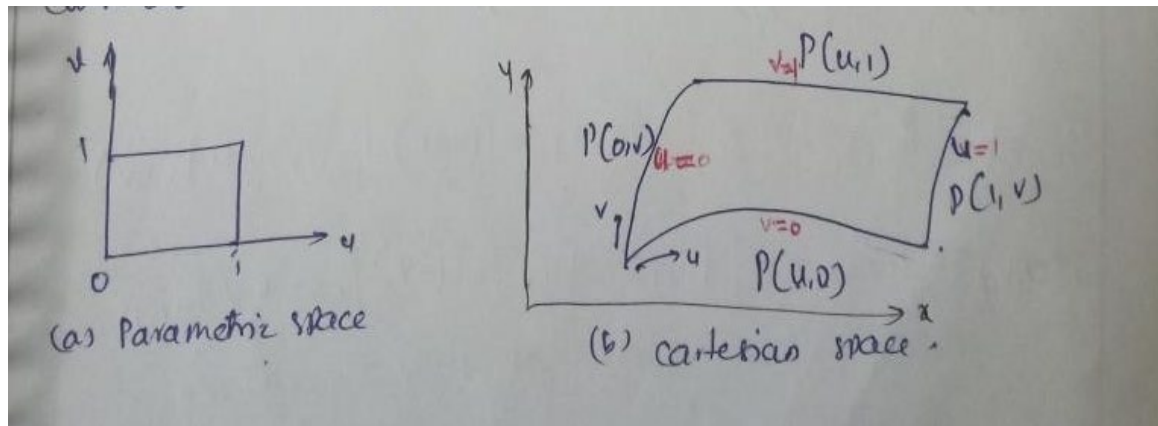 v
1
0
1
u
(a) Parametric space
y
v=1
P(u,1)
P(0,v)
u=0
u=1
P(1,v)
v
u
v=0
P(u,0)
x
(b) cartesian space.